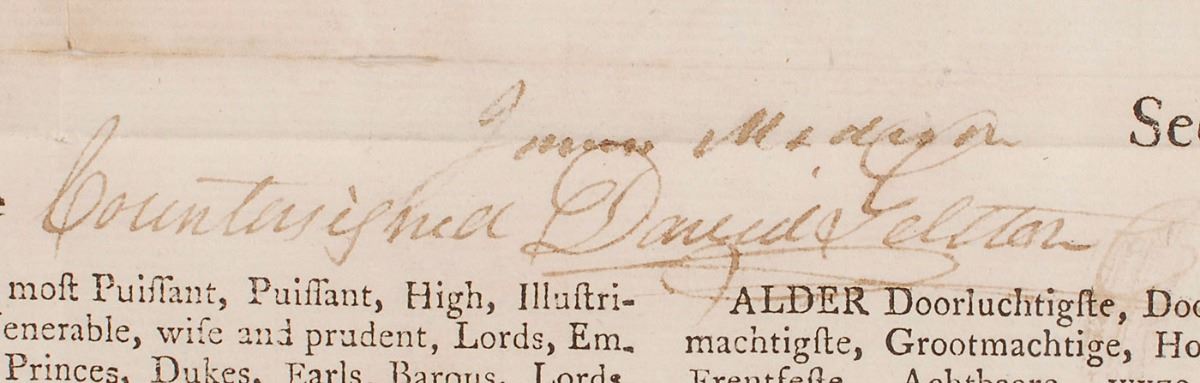 James Madison Sec
Countersigned David Gelston
most Puiſſant, Puiſſant, High, Illuſtri-
enerable, wiſe and prudent, Lords, Em-
Princes, Dukes, Earls, Barons, Lords,
ALDER Doorluchtigſte, Doo
machtigſte, Grootmachtige, Ho
Erentfeſte, Achtbaare,